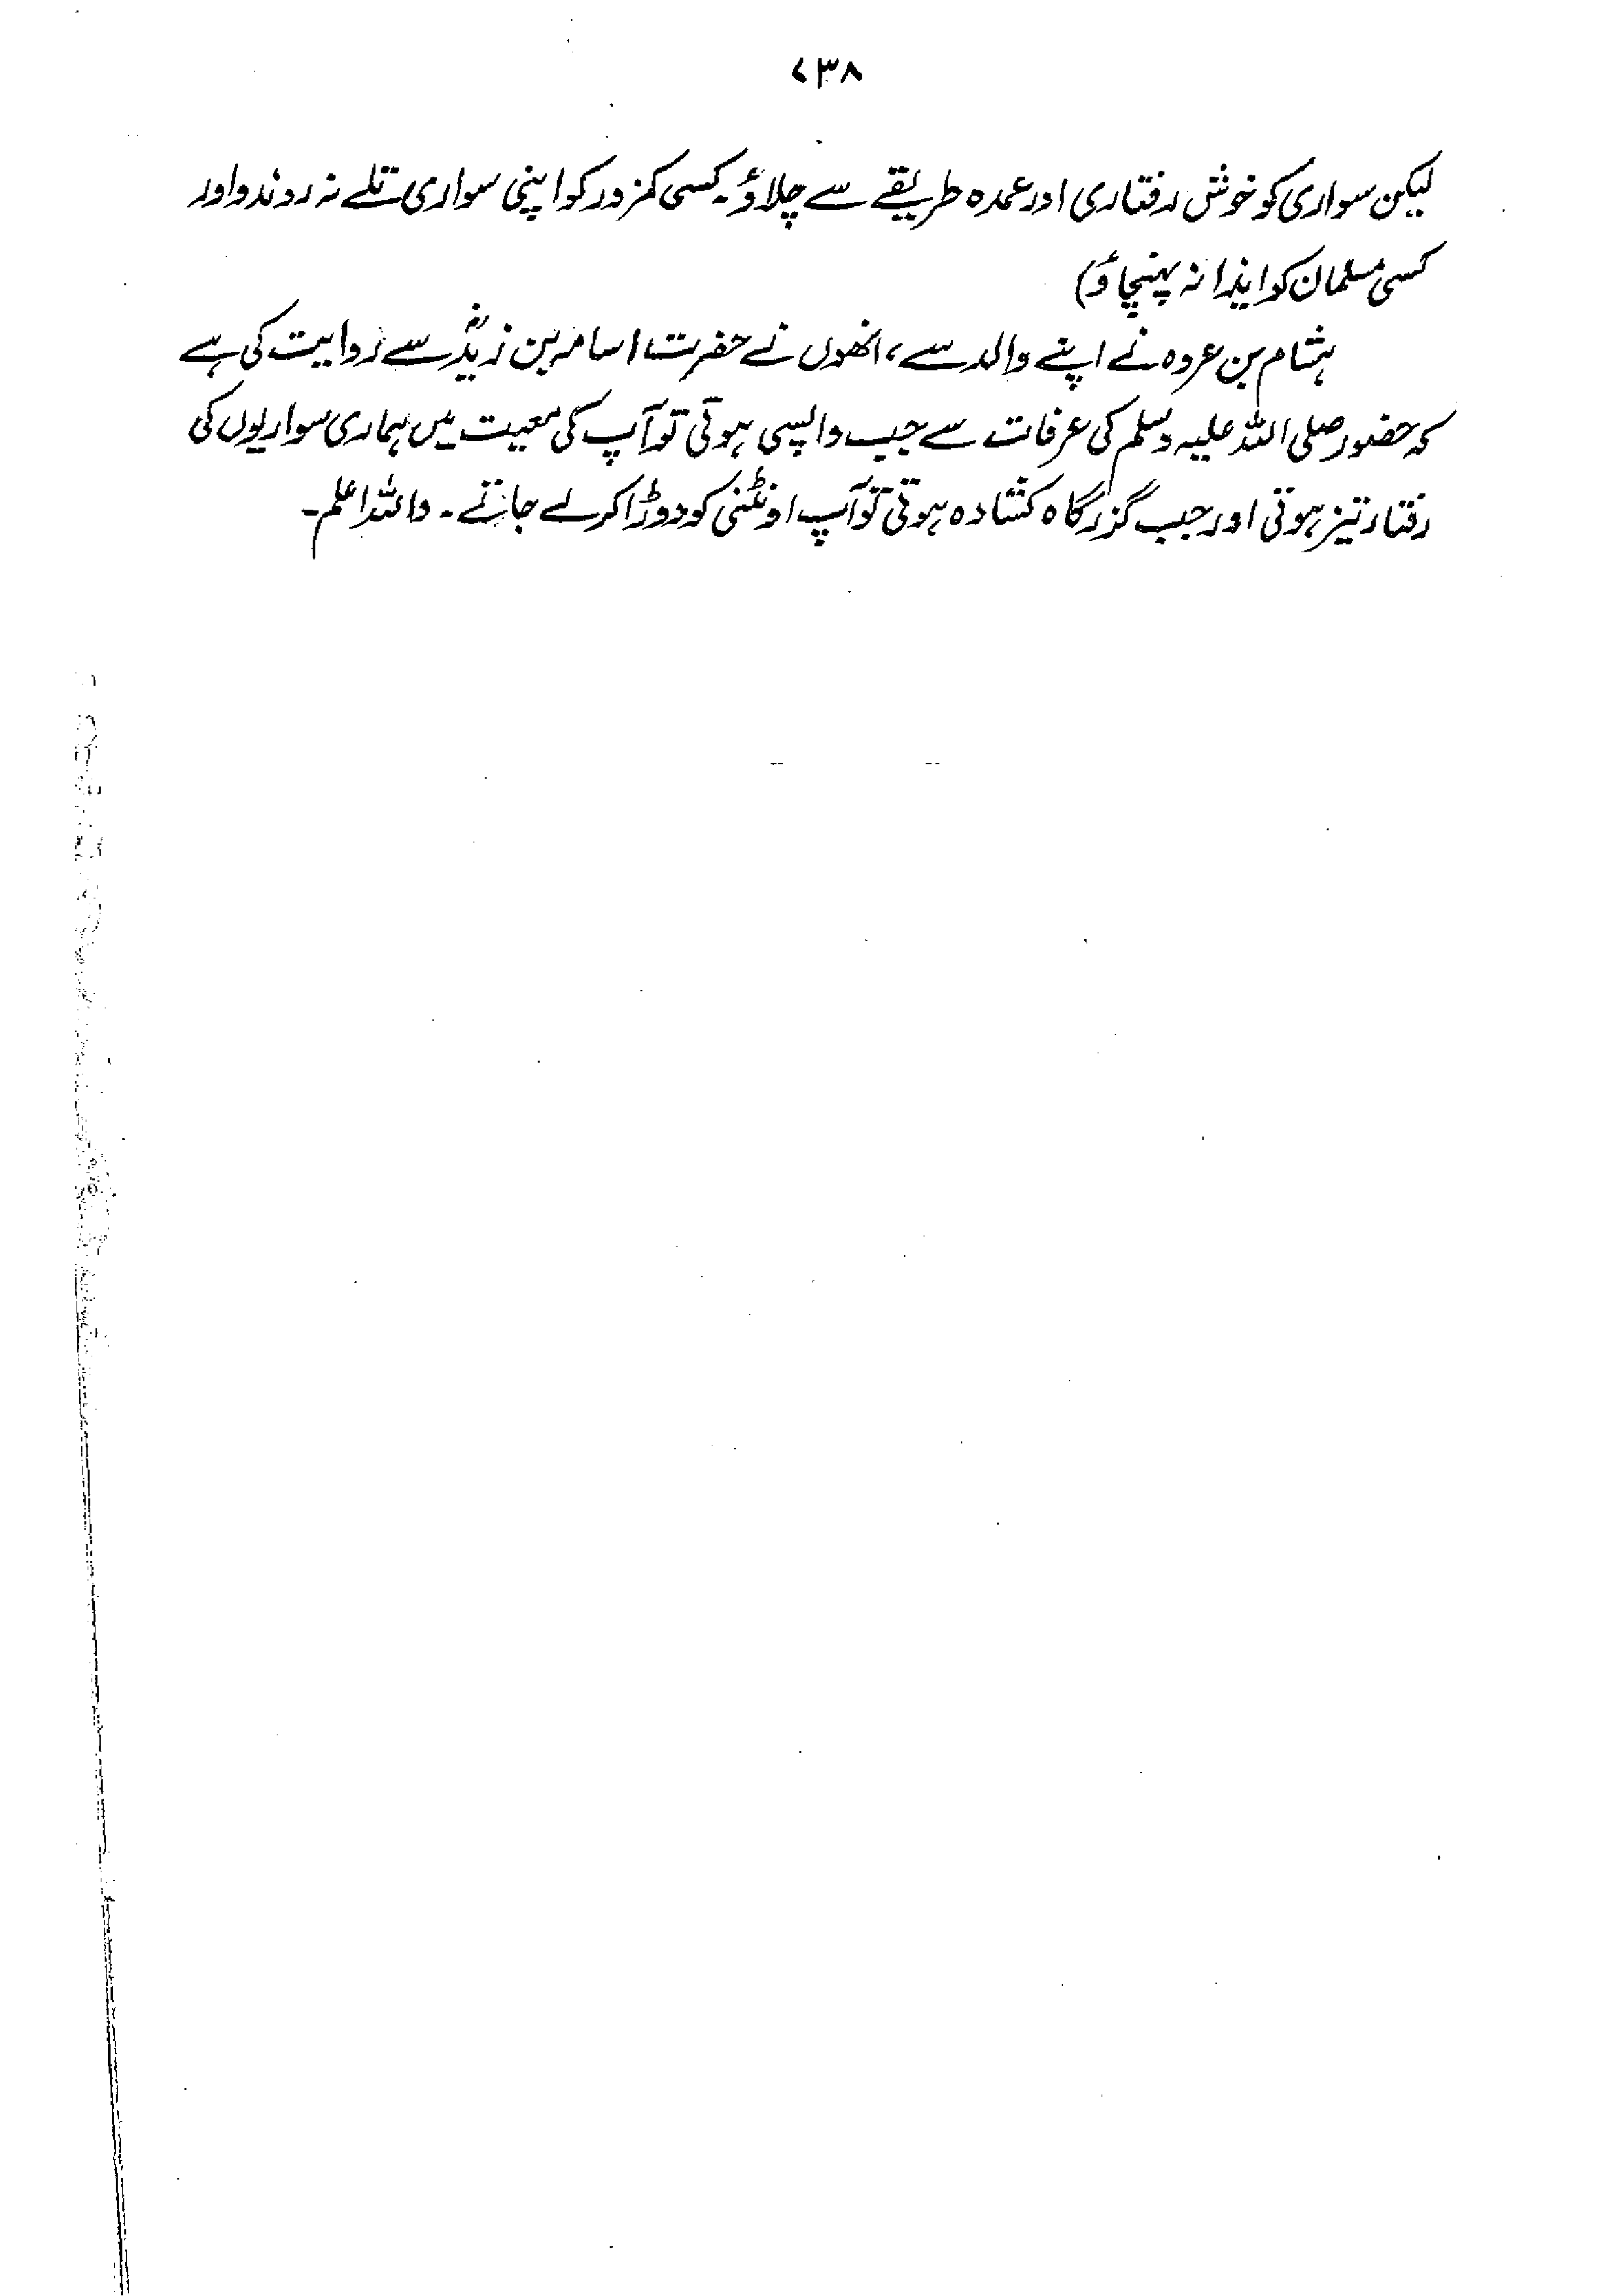 ۷۳۸
لیکن سواری کو خوش رفتاری اور عمدہ طریقے سے چلاؤ۔ کسی کمزور کو اپنی سواری تلے نہ روندو اور
کسی مسلمان کو ایذا نہ پہنچاؤ)
ہشام بن عروہ نے اپنے والد سے، انھوں نے حضرت اسامہ بن زیدؓ سے روایت کی ہے
کہ حضور صلی اللہ علیہ وسلم کی عرفات سے جب واپسی ہوتی تو آپ کی معیت میں ہماری سواریوں کی
رفتار تیز ہوتی اور جب گزرگاہ کشادہ ہوتی تو آپ اونٹنی کو دوڑا کر لے جاتے۔ واللہ اعلم۔